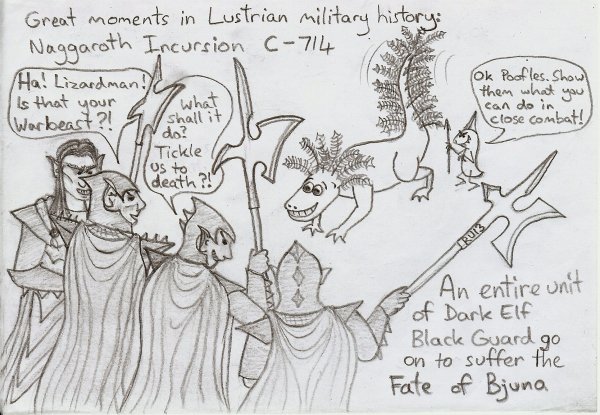 Great moments in Lustrian military history:
Naggaroth Incursion C-714
Ha! Lizardman!
Is that your
Warbeast?!
What
shall it
do?
Tickle
us to
death?!
Ok Poofles. Show
them what you
can do in
close combat!
RU13
An entire unit
of Dark Elf
Black Guard go
on to suffer the
Fate of Bjuna